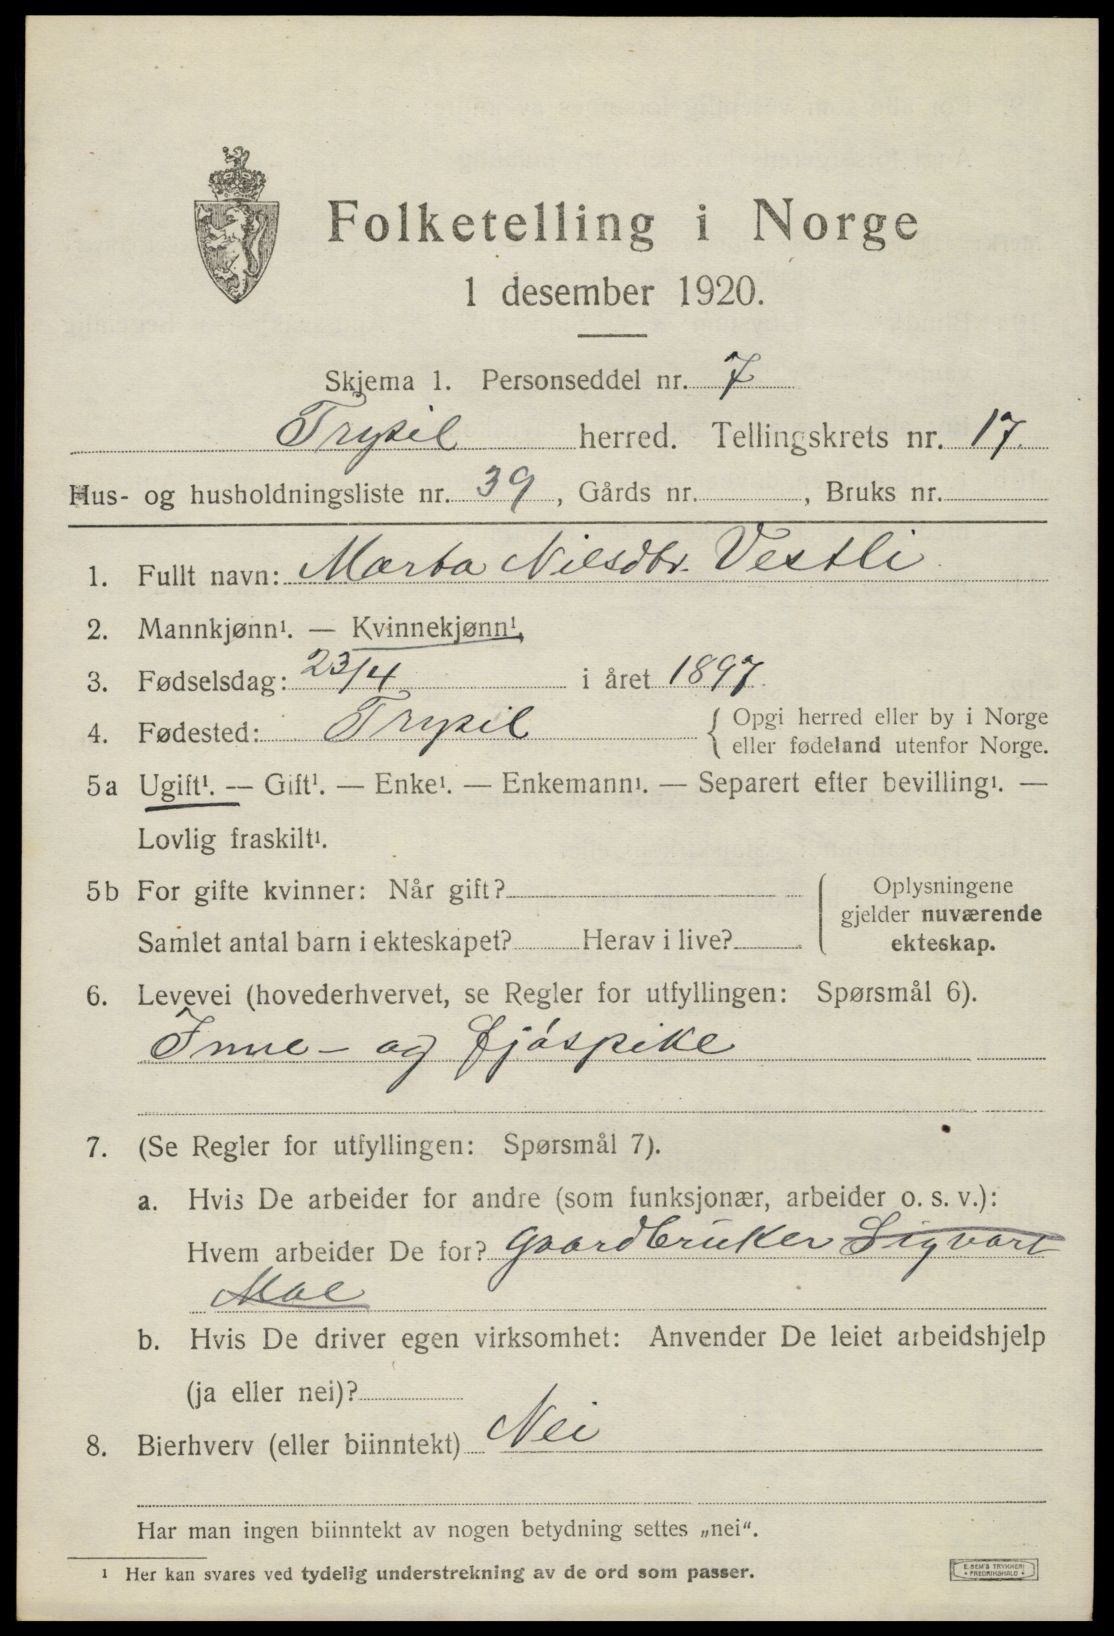 Folketelling i Norge
1 desember 1920.
Skjema 1. Personseddel nr. 7
Trysil herred. Tellingskrets nr. 17.
Hus- og husholdningsliste nr. 39, Gårds nr. , Bruks nr.
1. Fullt navn: Marta Nilsdtr. Vestli
2. Mannkjønn¹. — Kvinnekjønn¹.
3. Fødselsdag: 23/4 i året 1897.
4. Fødested: Trysil { Opgi herred eller by i Norge
eller fødeland utenfor Norge.
5a Ugift¹. — Gift¹. — Enke¹. — Enkemann¹. — Separert efter bevilling¹. —
Lovlig fraskilt¹.
5b For gifte kvinner: Når gift?
Samlet antal barn i ekteskapet? Herav i live?
Oplysningene
gjelder nuværende
ekteskap.
6. Levevei (hovederhvervet, se Regler for utfyllingen: Spørsmål 6).
Inne- og fjøspike
7. (Se Regler for utfyllingen: Spørsmål 7).
a. Hvis De arbeider for andre (som funksjonær, arbeider o. s. v.):
Hvem arbeider De for? Gaardbruker Sigvart
Moe
b. Hvis De driver egen virksomhet: Anvender De leiet arbeidshjelp
(ja eller nei)?
8. Bierhverv (eller biinntekt) Nei
Har man ingen biinntekt av nogen betydning settes „nei“.
¹ Her kan svares ved tydelig understrekning av de ord som passer.
E. SEM'S TRYKKERI
• FREDRIKSHALD •